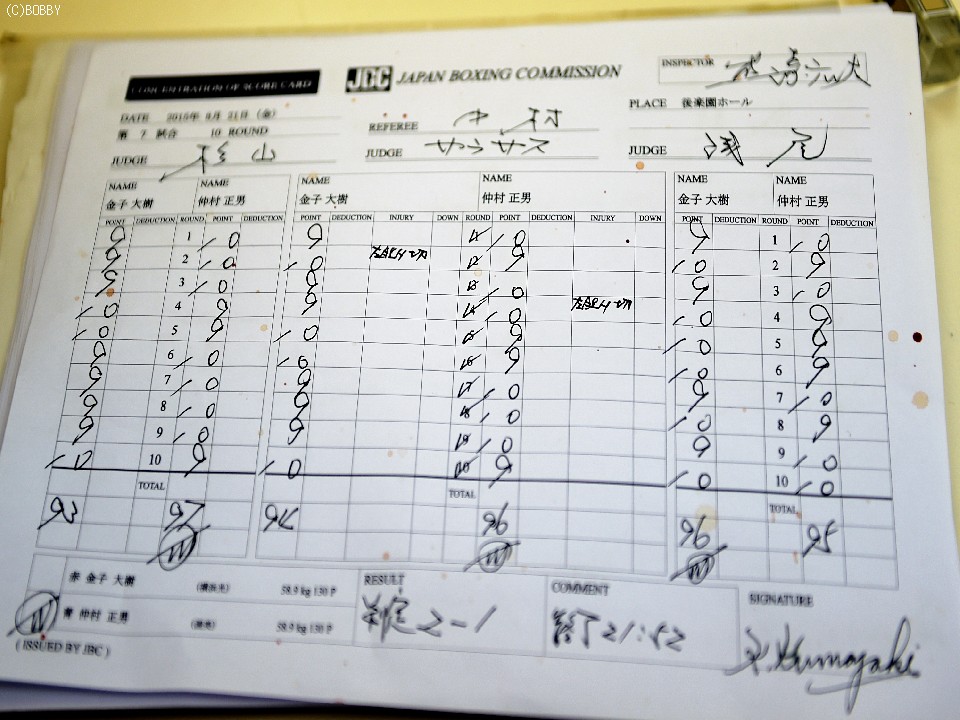 (C)BOBBY
CONCENTRATION OF SCORE CARD
JBC JAPAN BOXING COMMISSION
INSPECTOR
DATE 2018年 9月 21日 (金)
PLACE 後楽園ホール
第 7 試合 10 ROUND
REFEREE 中村
JUDGE 杉山
JUDGE サラサス
JUDGE 浅尾
NAME NAME NAME NAME NAME NAME
金子 大樹 仲村 正男 金子 大樹 仲村 正男 金子 大樹 仲村 正男
POINT DEDUCTION ROUND POINT DEDUCTION POINT DEDUCTION INJURY DOWN ROUND POINT DEDUCTION INJURY DOWN POINT DEDUCTION ROUND POINT DEDUCTION
9 1 10 9 11 10 9 1 10
9 2 10 10 12 9 10 2 9
9 3 10 9 13 10 9 3 10
10 4 9 9 14 10 10 4 9
10 5 9 10 15 9 10 5 9
9 6 10 10 16 9 10 6 9
9 7 10 9 17 10 9 7 10
9 8 10 9 18 10 10 8 9
9 9 10 9 19 10 9 9 10
10 10 9 10 9 10 10 10
TOTAL TOTAL TOTAL
93 97 94 96 96 95
W W W
赤 金子 大樹 (横浜光) 58.9 kg 130 P
W 青 仲村 正男 58.9 kg 130 P
RESULT
判定 2-1
COMMENT
終了 21:52
SIGNATURE
( ISSUED BY JBC )